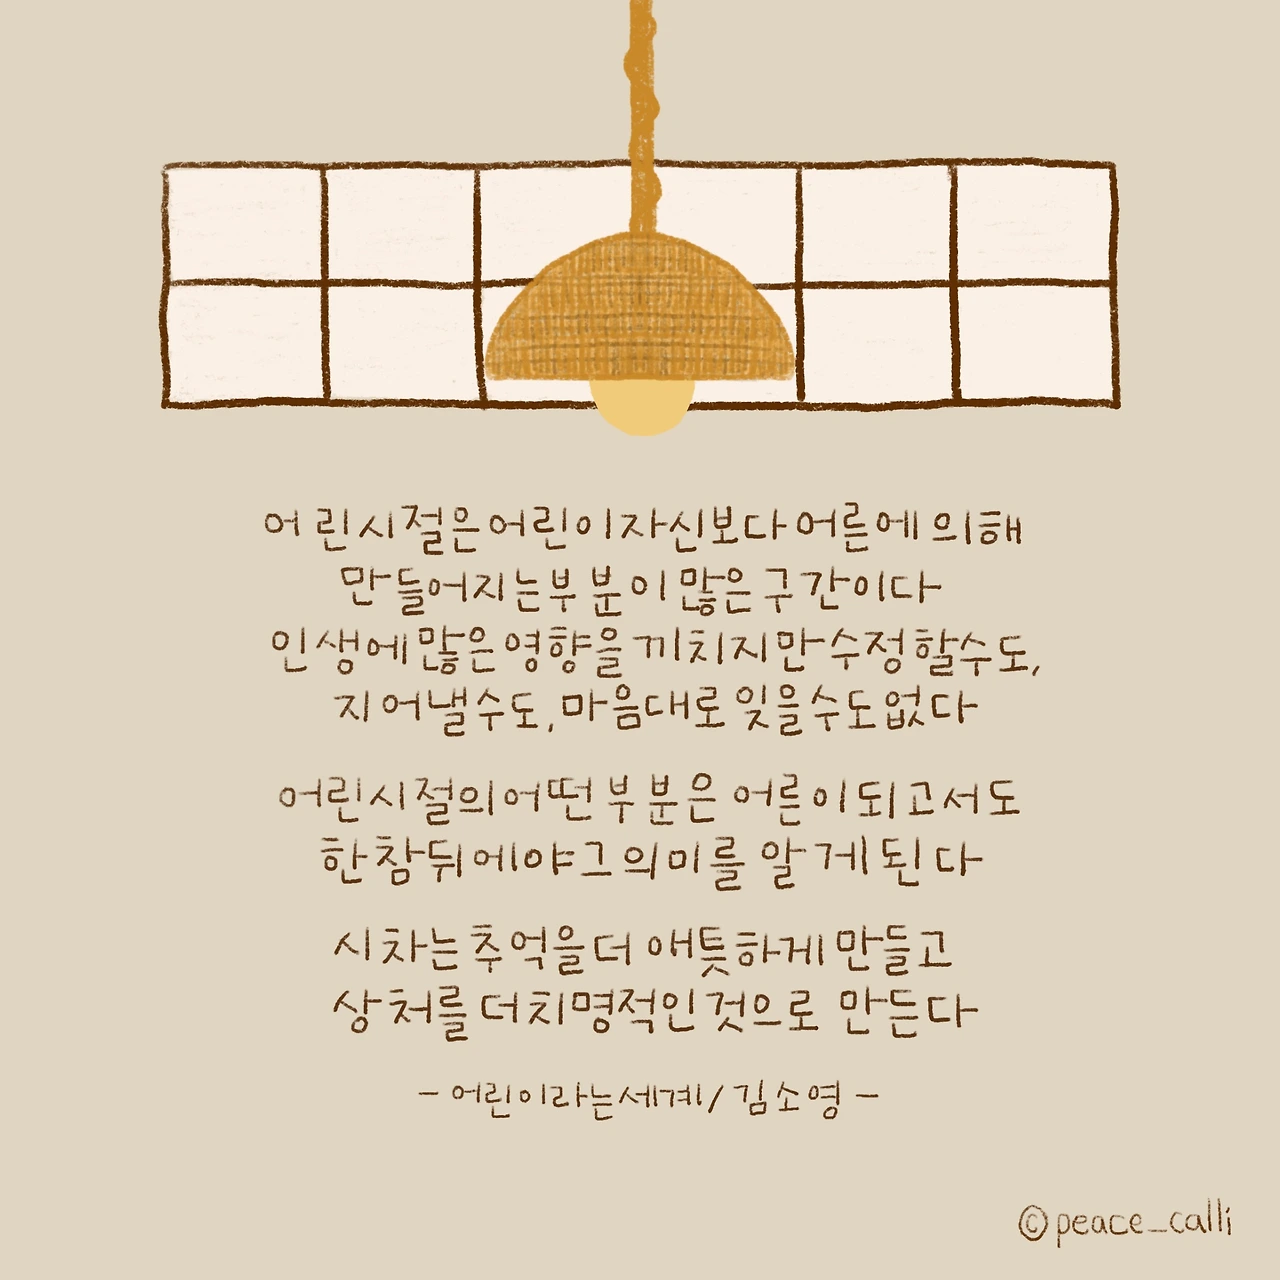 어린시절은어린이자신보다어른에의해
만들어지는부분이많은구간이다
인생에많은영향을끼치지만수정할수도,
지어낼수도,마음대로잊을수도없다
어린시절의어떤부분은 어른이되고서도
한참뒤에야그의미를 알게된다
시차는추억을더 애틋하게만들고
상처를더치명적인것으로 만든다
- 어린이라는세계/ 김소영 -
©peace_calli